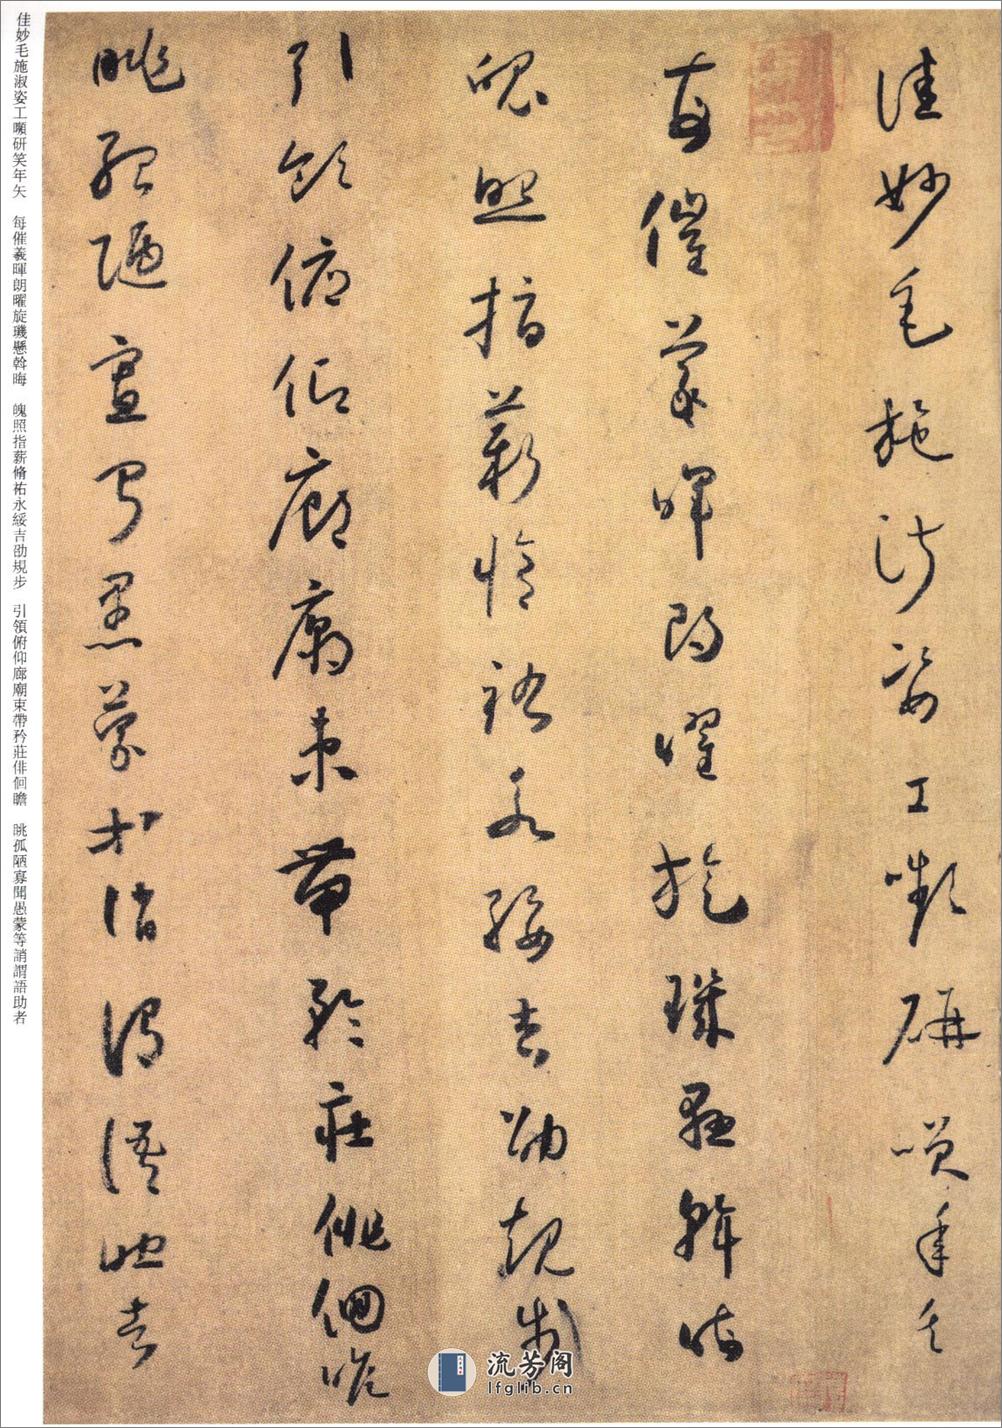 佳妙毛施淑姿工嚬研笑年矢
每催羲暉朗曜旋璣懸斡晦
魄照指薪脩祐永綏吉劭規步
引領俯仰廊廟束帶矜莊俳佪瞻
眺孤陋寡聞愚蒙等誚謂語助者
佳妙毛施淑姿工嚬研笑年矢　每催羲暉朗曜旋璣懸斡晦　魄照指薪脩祐永綏吉劭規步　引領俯仰廊廟束帶矜莊俳佪瞻　眺孤陋寡聞愚蒙等誚謂語助者
流芳阁
lfglib.cn